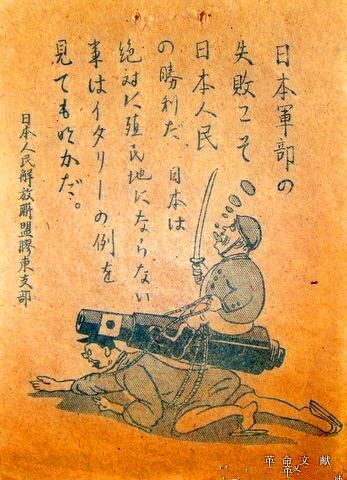 日本軍部の
失敗こそ
日本人民
の勝利だ、日本は
絶対に殖民地にならない
事はイタリーの例を
見ても明かだ。
日本人民解放聯盟膠東支部
革命文献